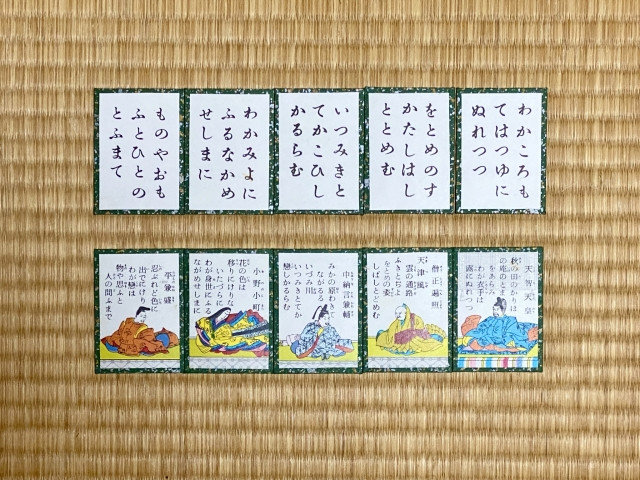 わかころも
てはつゆに
ぬれつつ
をとめのす
かたしはし
ととめむ
いつみきと
てかこひし
かるらむ
わかみよに
ふるなかめ
せしまに
ものやおも
ふとひとの
とふまて
天智天皇
秋の田のかりほ
の庵のとま
をあらみ
わが衣手は
露にぬれつつ
僧正遍昭
天津風
雲の通路
ふきとぢよ
をとめの姿
しばしとどめむ
中納言兼輔
みかの原わきて
ながるる
いづみ川
いつみきとてか
戀しかるらむ
小野小町
花の色は
移りにけりな
いたづらに
わが身世にふる
ながめせしまに
平兼盛
忍ぶれど色に
出でにけり
わが戀は
物や思ふと
人の問ふまで